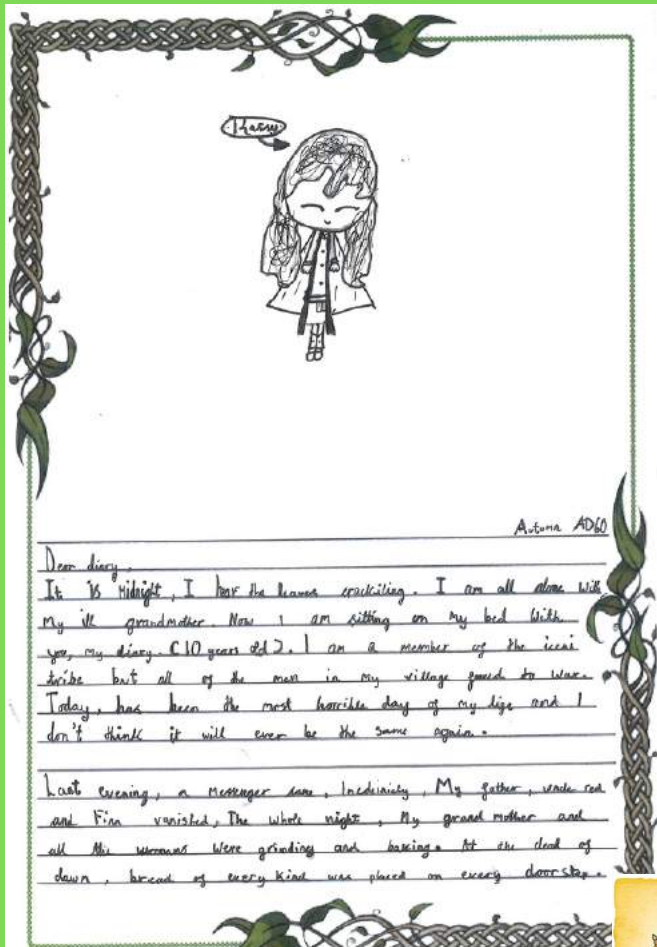 Kassy
Autumn AD60
Dear diary,
It is Midnight, I hear the leaves crackiling. I am all alone with
My ill grandmother. Now I am sitting on my bed With
you, my diary. (10 years old). I am a member of the iceni
tribe but all of the men in my village to war.
Today, has been the most horrible day of my life and I
don't think it will ever be the same again.
Last evening, a messenger came, My father, uncle red
and Finn vanished, The whole night, My grand mother and
all the were grinding and baking. At the dead of
dawn, bread of every kind was placed on every doorstep.